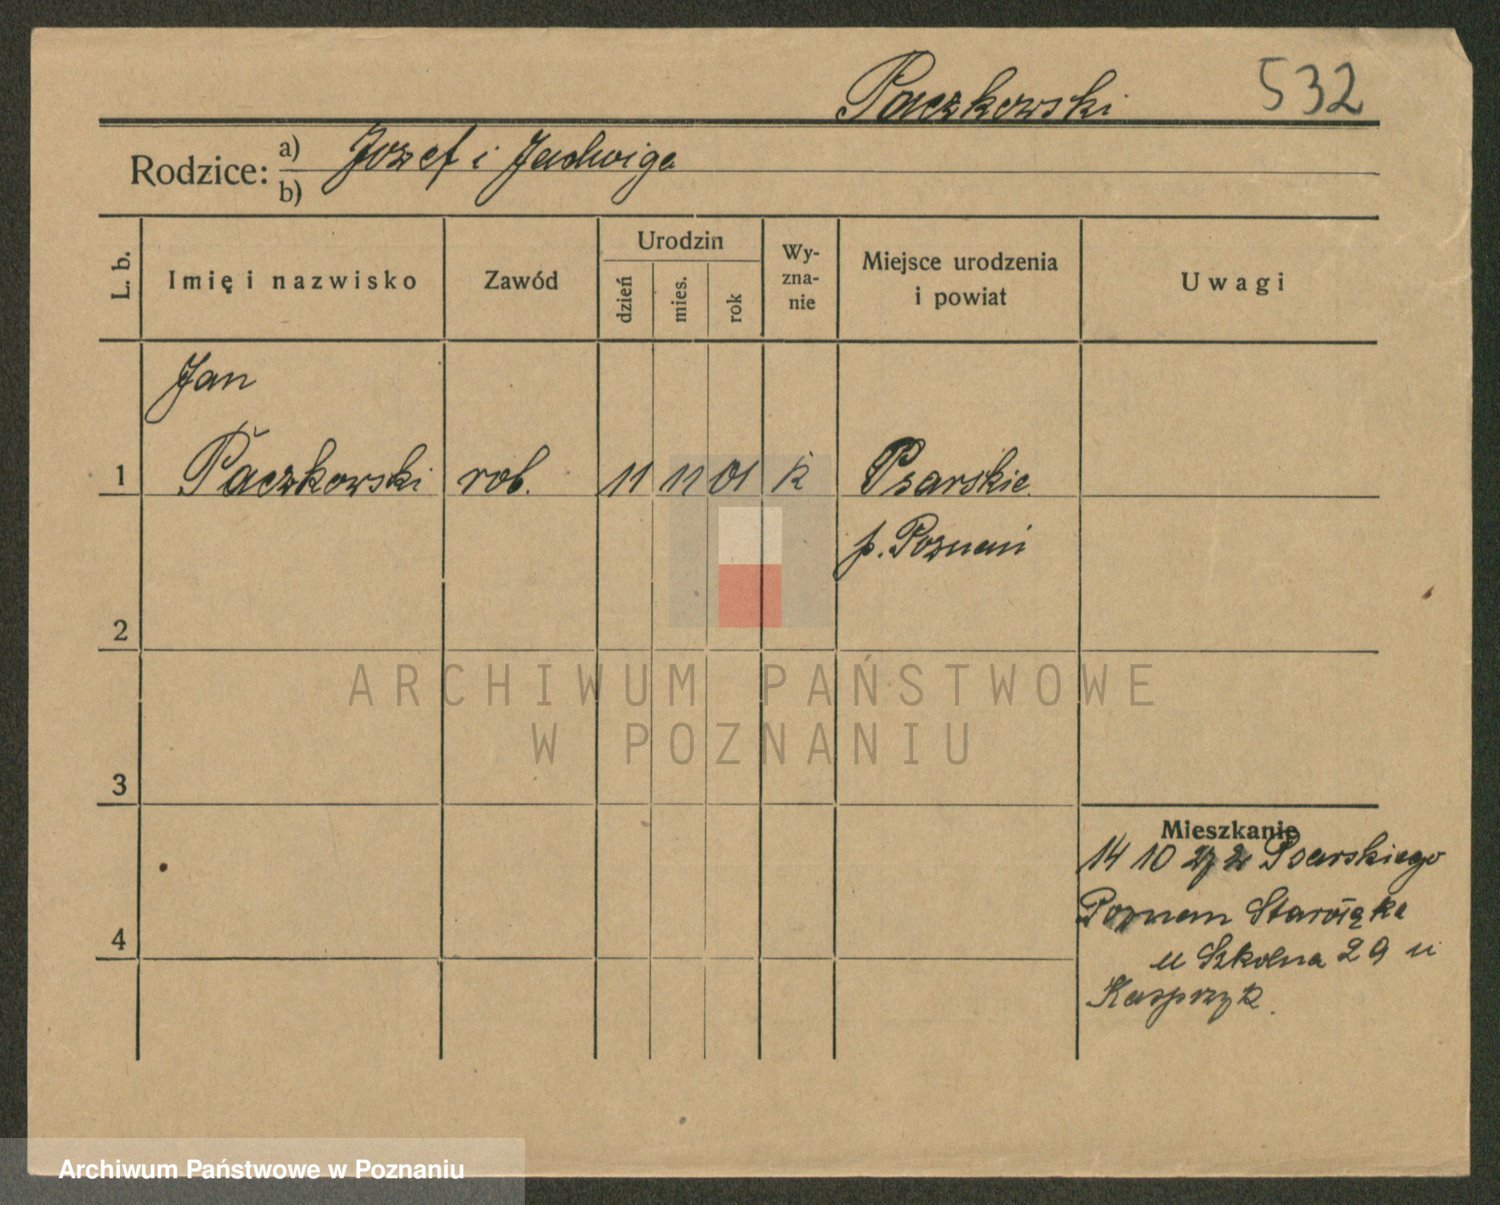 Paczkowski 532
Rodzice: a) Józef i Jadwiga
b)
L. b. Imię i nazwisko Zawód Urodzin dzień mies. rok Wy-zna-nie Miejsce urodzenia i powiat Uwagi
Jan
1 Paczkowski rob. 11 11 01 k Psarskie
p. Poznań
2
ARCHIWUM PAŃSTWOWE
W POZNANIU
3
Mieszkanie
14 10 z Psarskiego
Poznań Starołęka
4
u Szkolna 29 u
Kasprzyk.
Archiwum Państwowe w Poznaniu